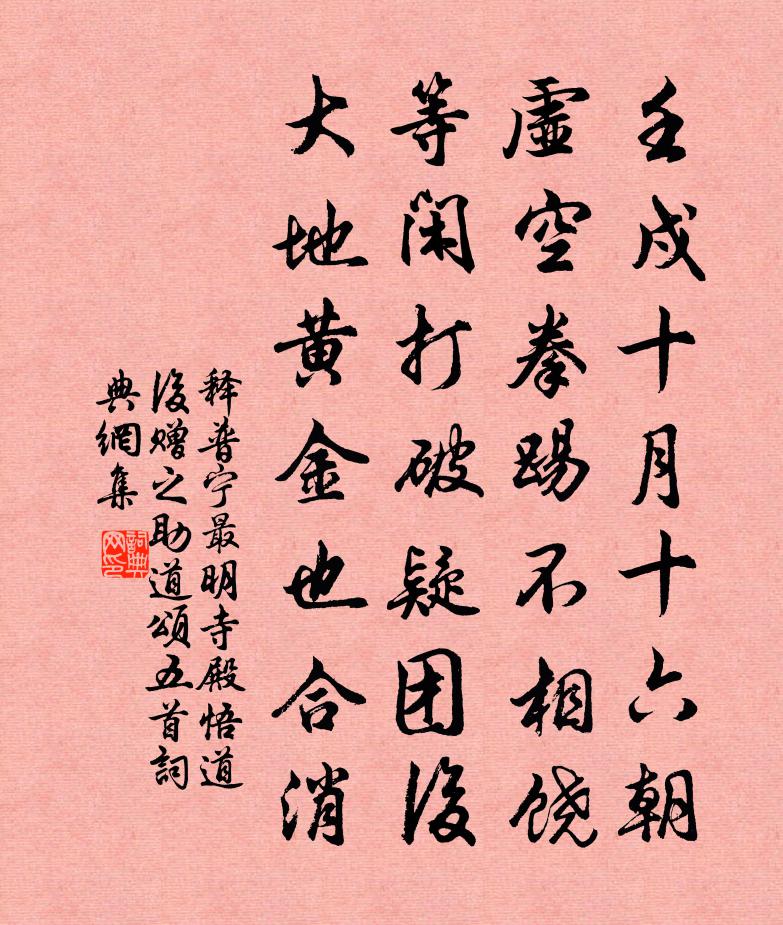 壬戌十月十六朝
虚空拳踢不相饶
等闲打破疑团後
大地黄金也合消
释普宁最明寺殿悟道
後赠之助道颂五首詞
典網集
詞典网印